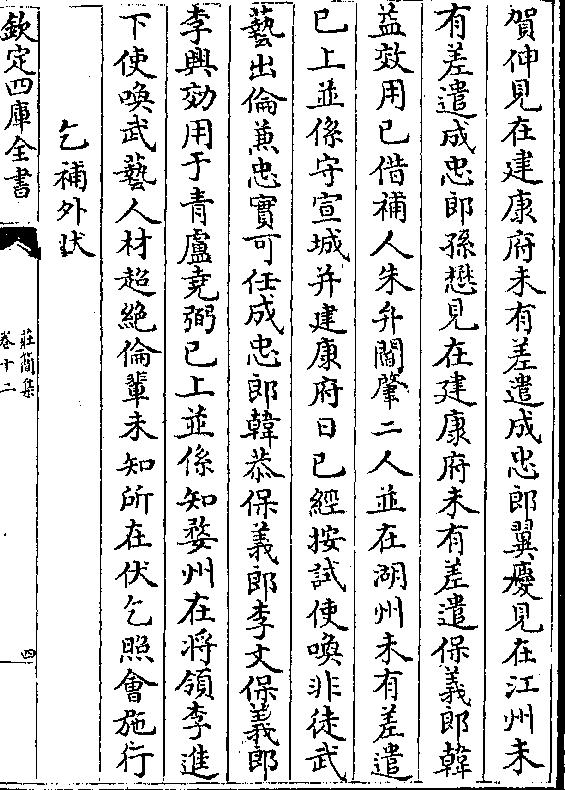 賀伸見在建康府未有差遣成忠郎翼慶見在江州未
有差遣成忠郎孫懋見在建康府未有差遣保義郎韓
益效用已借補人朱升閻肇二人並在湖州未有差遣
已上並係守宣城并建康府日已經按試使喚非徒武
藝出倫兼忠實可任成忠郎韓恭保義郎李文保義郎
李興効用于青盧堯弼已上並係知婺州在将領李進
下使喚武藝人材超絶倫輩未知所在伏乞照會施行
乞補外狀
欽定四庫全書
莊簡集
卷十二
四